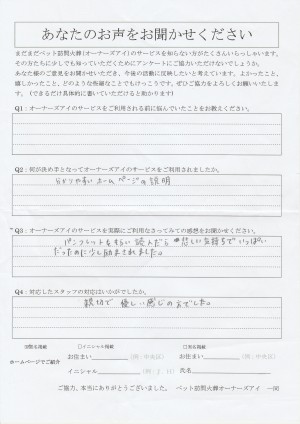 あなたのお声をお聞かせください
まだまだペット訪問火葬(オーナーズアイ)のサービスを知らない方がたくさんいらっしゃいます。
その方たちに少しでも知っていただくためにアンケートにご協力いただけないでしょうか。
あなた様のご意見をお聞かせいただき、今後の活動に反映したいと考えています。よかったこと、
嬉しかったこと、どのような些細なことでもけっこうです、ぜひご協力をよろしくお願いいたしま
す。(できるだけ具体的に書いていただけると助かります)
Q1:オーナーズアイのサービスをご利用される前に悩んでいたことをお教えください。
Q2:何が決め手となってオーナーズアイのサービスをご利用されましたか。
分かりやすいホームページの説明
Q3:オーナーズアイのサービスを実際にご利用なさってみての感想をお聞かせください。
パンフレットをもらい読んだら悲しい気持ちでいっぱい
だったのに少し励まされました。
Q4:対応したスタッフの対応はいかがでしたか。
親切で優しい感じの方でした。
匿名掲載 □イニシャル掲載 □実名掲載
ホームページでご紹介
お住まい (例:中央区) お住まい (例:中央区)
イニシャル (例:J・H) 氏名
ご協力、本当にありがとうございました。 ペット訪問火葬オーナーズアイ